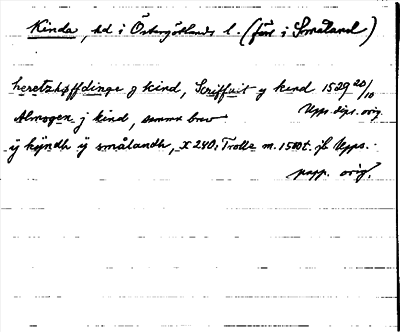 Kinda, hd i Östergötlands l. (förr i Småland)
heretzhøffdinge y kind, Scriffuit y kind 1529 20/10
Upps. dips. orig.
Almogen j kind, samma brev
ij kijndh ij smålandh, x 240, Trolle m. 1500t. jb Upps.
papp. orig.